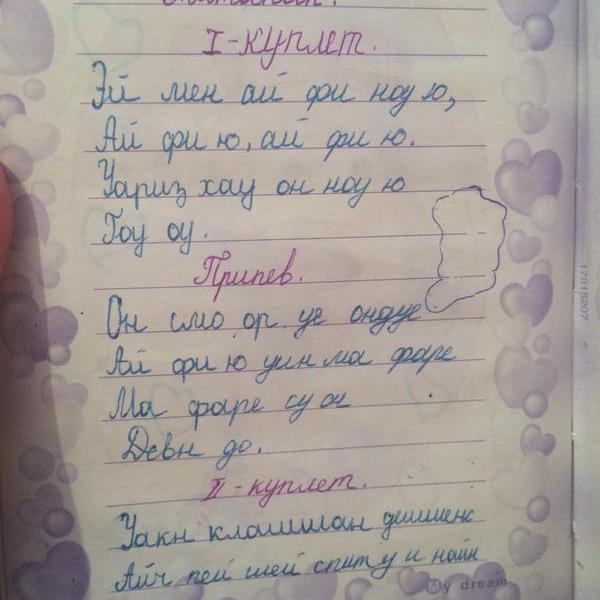 I-куплет.
Эй мен ай фи ноу ю,
Ай фи ю, ай фи ю.
Уариз хау он ноу ю
Гоу оу.
Припев.
Он смо ор уе ондуе
Ай фи ю уин ма фаре
Ма фаре су он
Девн до.
II-куплет.
Уакн клашшан дешшенс
Айч пей шей спиту и найн
My dream
17018207